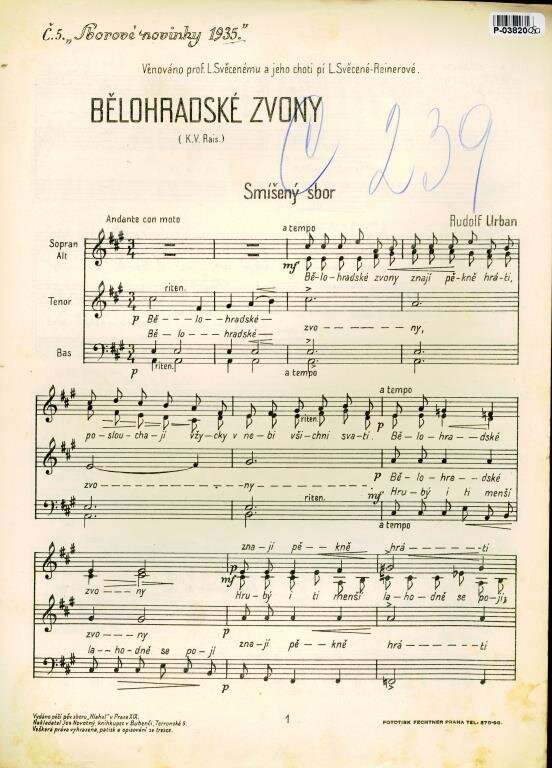 Č.5. „Sborové novinky 1935."
P-03820
Věnováno prof. L.Svěcenému a jeho choti pí L.Svěcené-Reinerové.
BĚLOHRADSKÉ ZVONY
C 239
( K.V. Rais.)
Smíšený sbor
Rudolf Urban
Andante con moto
a tempo
Sopran
Alt
mf
Bě-lo-hradské zvony znají pě-kně hrá-ti,
riten.
Tenor
p Bě---lo--hradské
zvo---ny,
Bě---lo--hradské
Bas
p riten.
a tempo
riten.
a tempo
p
po-slou-cha-jí vžy-cky v ne-bi vši-chni sva-tí. Bě-lo-hra--dské
p Bě-lo-hra--dské
zvo---ny
riten.
mf Hru-bý i ti menší
a tempo
zna-jí pě-kně hrá---ti
p
zvo---ny
mf Hru-bý i ti menší la-ho-dně se po-jí;
zvo---ny
p zna-jí pě--kně hrá---ti
la-ho-dně se po-jí
p
Vydáno péčí pěv. sboru „Hlahol" v Praze XIX.
Nakladatel Jos. Novotný, knihkupec v Bubenči, Terronská 9.
Veškerá práva vyhrazena, patisk a opisování se tresce.
1
FOTOTISK FECHTNER PRAHA TEL: 375-96.